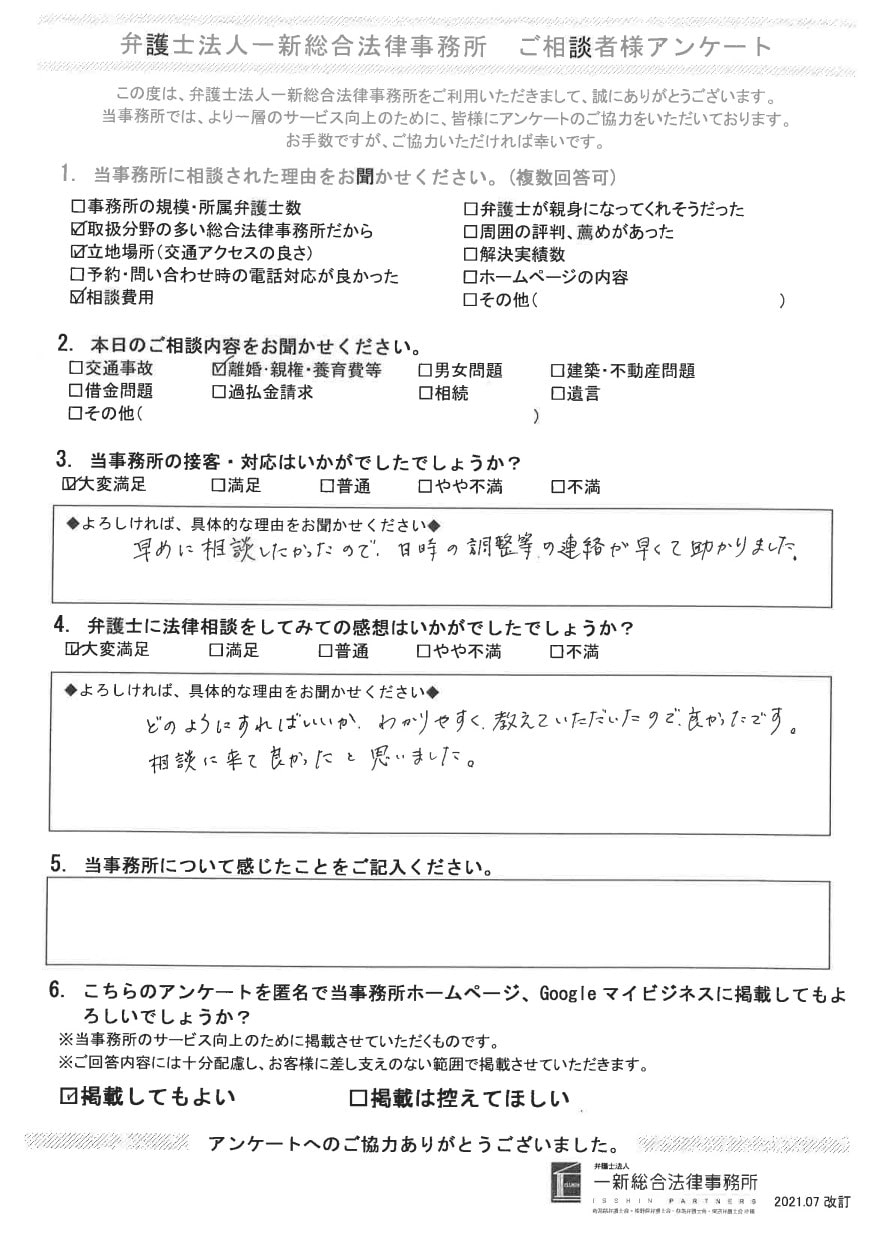 弁護士法人一新総合法律事務所　ご相談者様アンケート
この度は、弁護士法人一新総合法律事務所をご利用いただきまして、誠にありがとうございます。
当事務所では、より一層のサービス向上のために、皆様にアンケートのご協力をいただいております。
お手数ですが、ご協力いただければ幸いです。
1. 当事務所に相談された理由をお聞かせください。（複数回答可）
□事務所の規模・所属弁護士数　□弁護士が親身になってくれそうだった
☑取扱分野の多い総合法律事務所だから　□周囲の評判、薦めがあった
☑立地場所（交通アクセスの良さ）　□解決実績数
□予約・問い合わせ時の電話対応が良かった　□ホームページの内容
☑相談費用　□その他（　　　）
2. 本日のご相談内容をお聞かせください。
□交通事故　☑離婚・親権・養育費等　□男女問題　□建築・不動産問題
□借金問題　□過払金請求　□相続　□遺言
□その他（　　　）
3. 当事務所の接客・対応はいかがでしたでしょうか？
☑大変満足　□満足　□普通　□やや不満　□不満
◆よろしければ、具体的な理由をお聞かせください◆
早めに相談したかったので、日時の調整等の連絡が早くて助かりました。
4. 弁護士に法律相談をしてみての感想はいかがでしたでしょうか？
☑大変満足　□満足　□普通　□やや不満　□不満
◆よろしければ、具体的な理由をお聞かせください◆
どのようにすればいいか、わかりやすく、教えていただいたので、良かったです。
相談に来て良かったと思いました。
5. 当事務所について感じたことをご記入ください。
6. こちらのアンケートを匿名で当事務所ホームページ、Google マイビジネスに掲載してもよ
ろしいでしょうか？
※当事務所のサービス向上のために掲載させていただくものです。
※ご回答内容には十分配慮し、お客様に差し支えのない範囲で掲載させていただきます。
☑掲載してもよい　□掲載は控えてほしい
アンケートへのご協力ありがとうございました。
弁護士法人
一新総合法律事務所
ISSHIN PARTNERS
2021.07 改訂